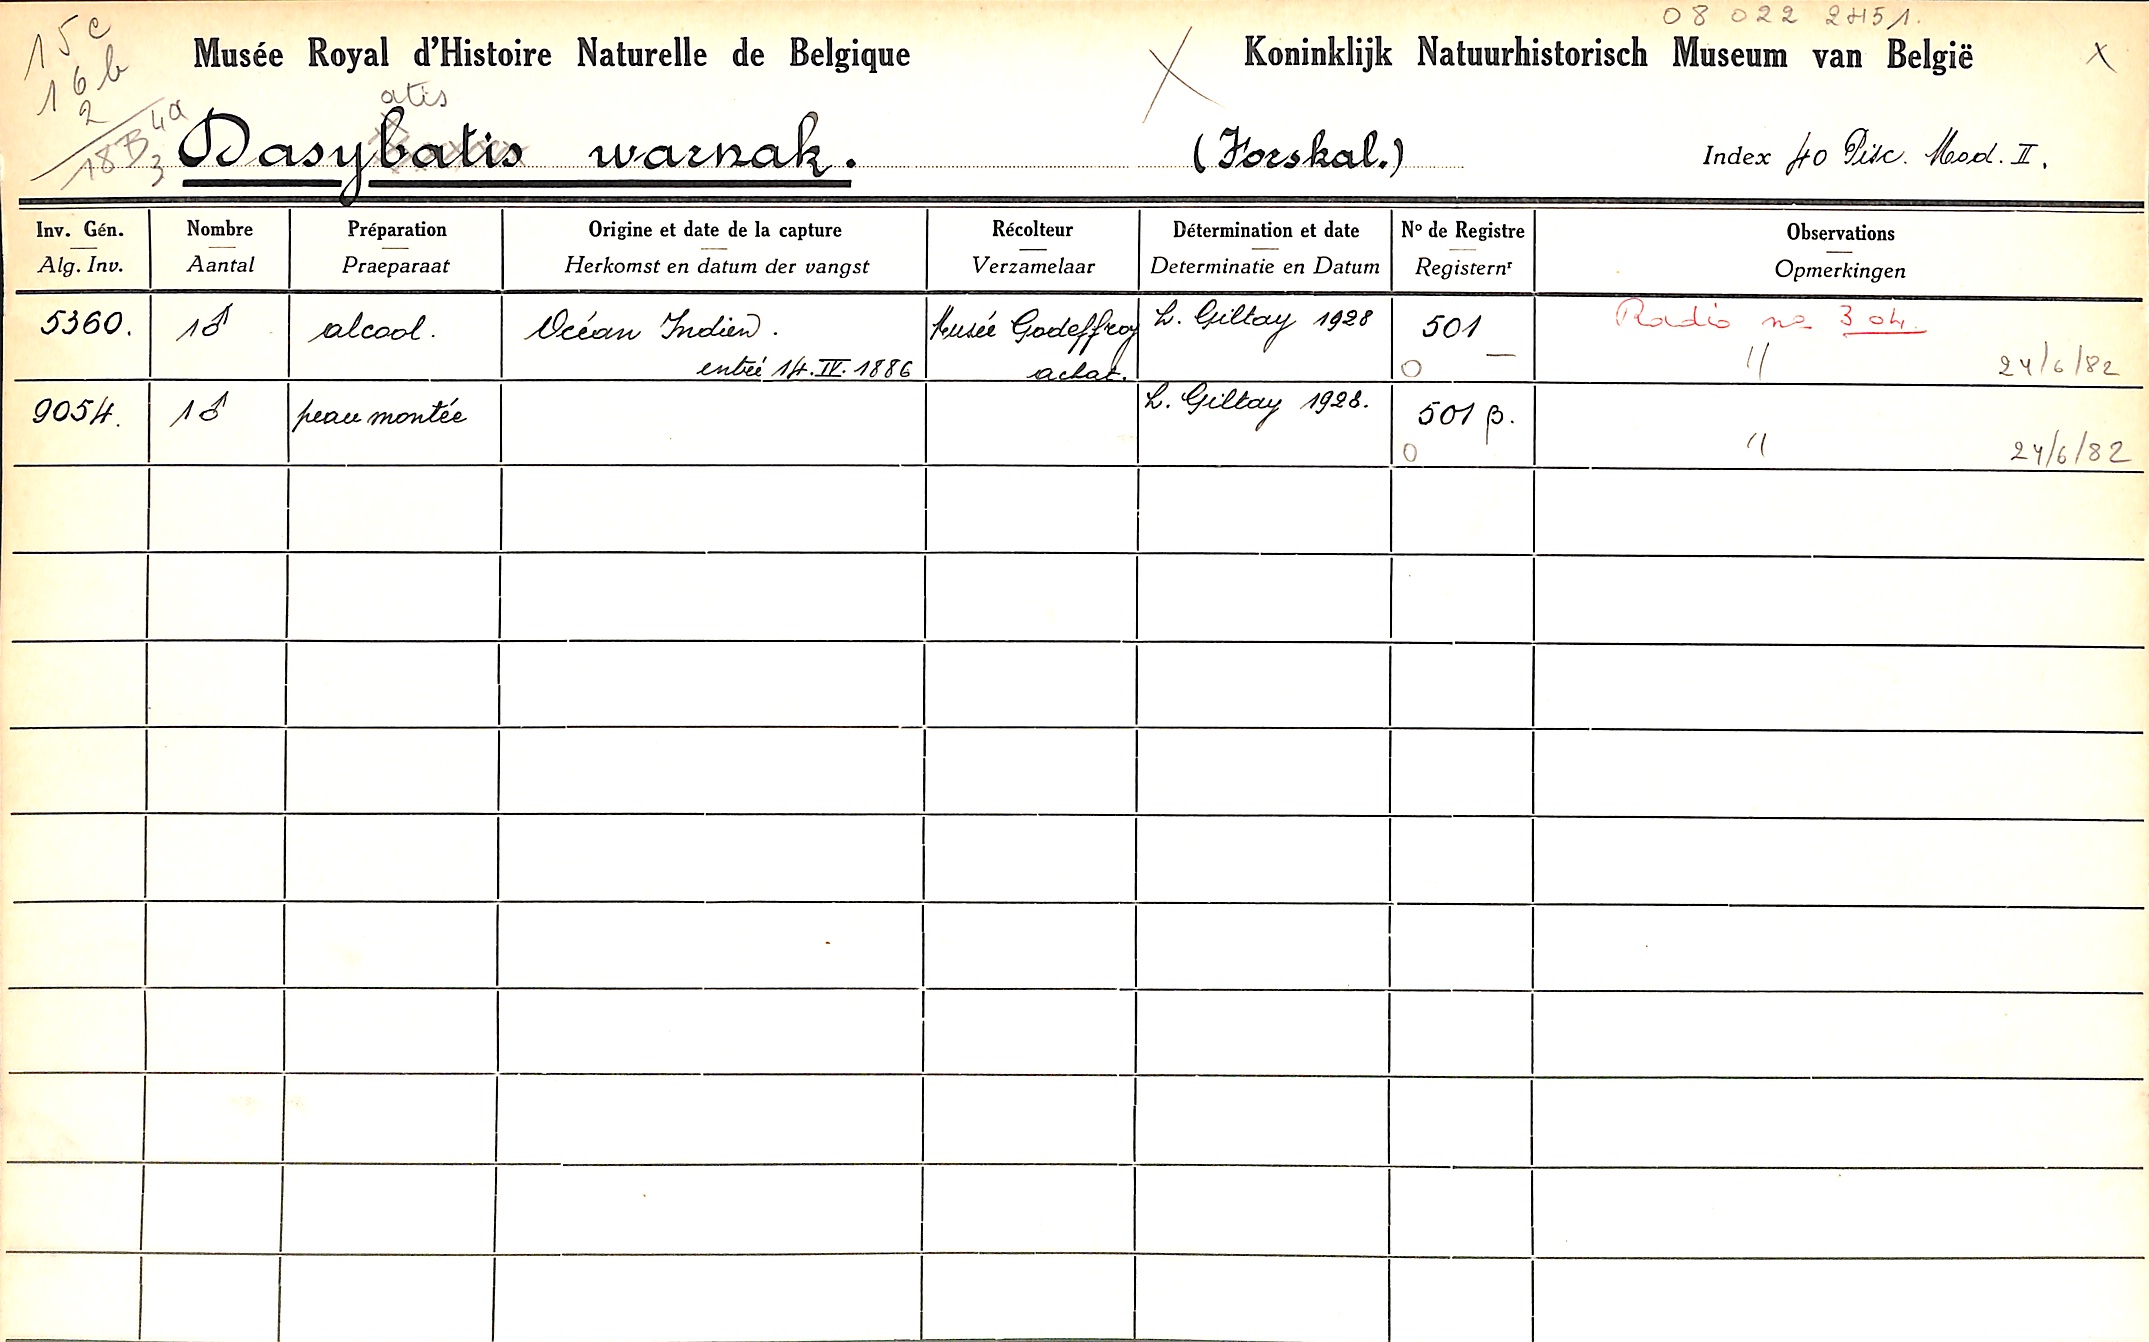 08 022 2451.
15c
16b
2
4a
18B
3
Musée Royal d'Histoire Naturelle de Belgique
Koninklijk Natuurhistorisch Museum van België
X
X
atis
Dasybatis warnak. (Forskal.) Index 40 Pisc. Mod. II.
Inv. Gén. Nombre Préparation Origine et date de la capture Récolteur Détermination et date Nº de Registre Observations
Alg. Inv. Aantal Praeparaat Herkomst en datum der vangst Verzamelaar Determinatie en Datum Registernr Opmerkingen
5360. 1♂ alcool. Océan Indien. Musée Godeffroy L. Giltay 1928 501 Radio no 304.
entrée 14.IV.1886 achat. O — " 24/6/82
9054. 1♂ peau montée L. Giltay 1928. 501 β.
O " 24/6/82